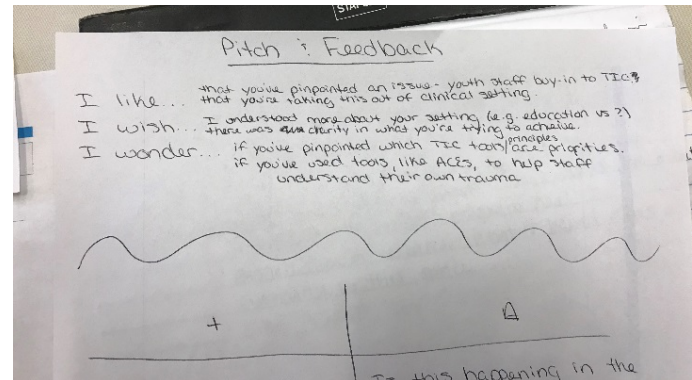 Pitch & Feedback
I like... that you've pinpointed an issue - youth staff buy-in to TIC &
that you're taking this out of clinical setting.
I wish... I understood more about your setting (e.g. education vs ?)
there was clarity in what you're trying to acheive.
I wonder... if you've pinpointed which TIC tools/principles are priorities.
if you've used tools, like ACEs, to help staff
understand their own trauma
+
Is this happening in the